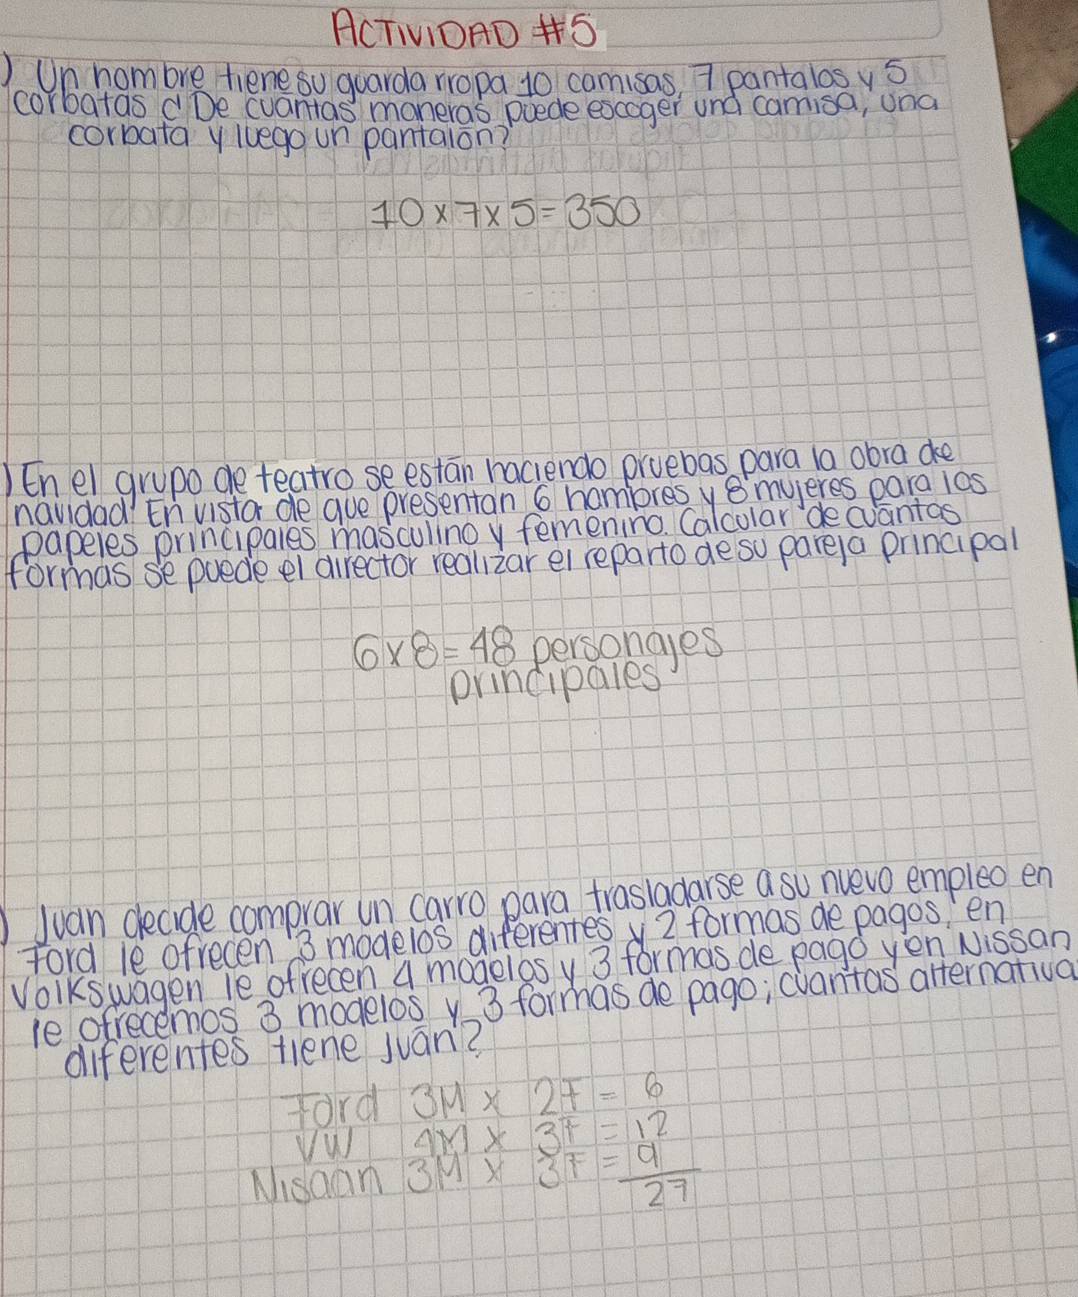 ACTIVIDAD #5
) Un hombre tiene su guarda rropa 10 camisas, 7 pantalos y 5
corbatas ¿De cuantas maneras puede escoger una camisa, una
corbata y luego un pantalón?
10 x 7 x 5 = 350
) En el grupo de teatro se están haciendo pruebas para la obra de
navidad. En vista de que presentan 6 hombres y 8 mujeres para los
papeles principales masculino y femenino. Calcular de cuántas
formas se puede el director realizar el reparto de su pareja principal
6 x 8 = 48 personajes
principales
) Juan decide comprar un carro para trasladarse a su nuevo empleo en
Ford le ofrecen 3 modelos diferentes y 2 formas de pagos, en
Volkswagen le ofrecen 4 modelos y 3 formas de pago y en Nissan
le ofrecemos 3 modelos y 3 formas de pago; cuantas alternativa
diferentes tiene Juán?
Ford 3M x 2F = 6
VW 4M x 3F = 12
Nisaan 3M x 3F = 9
27